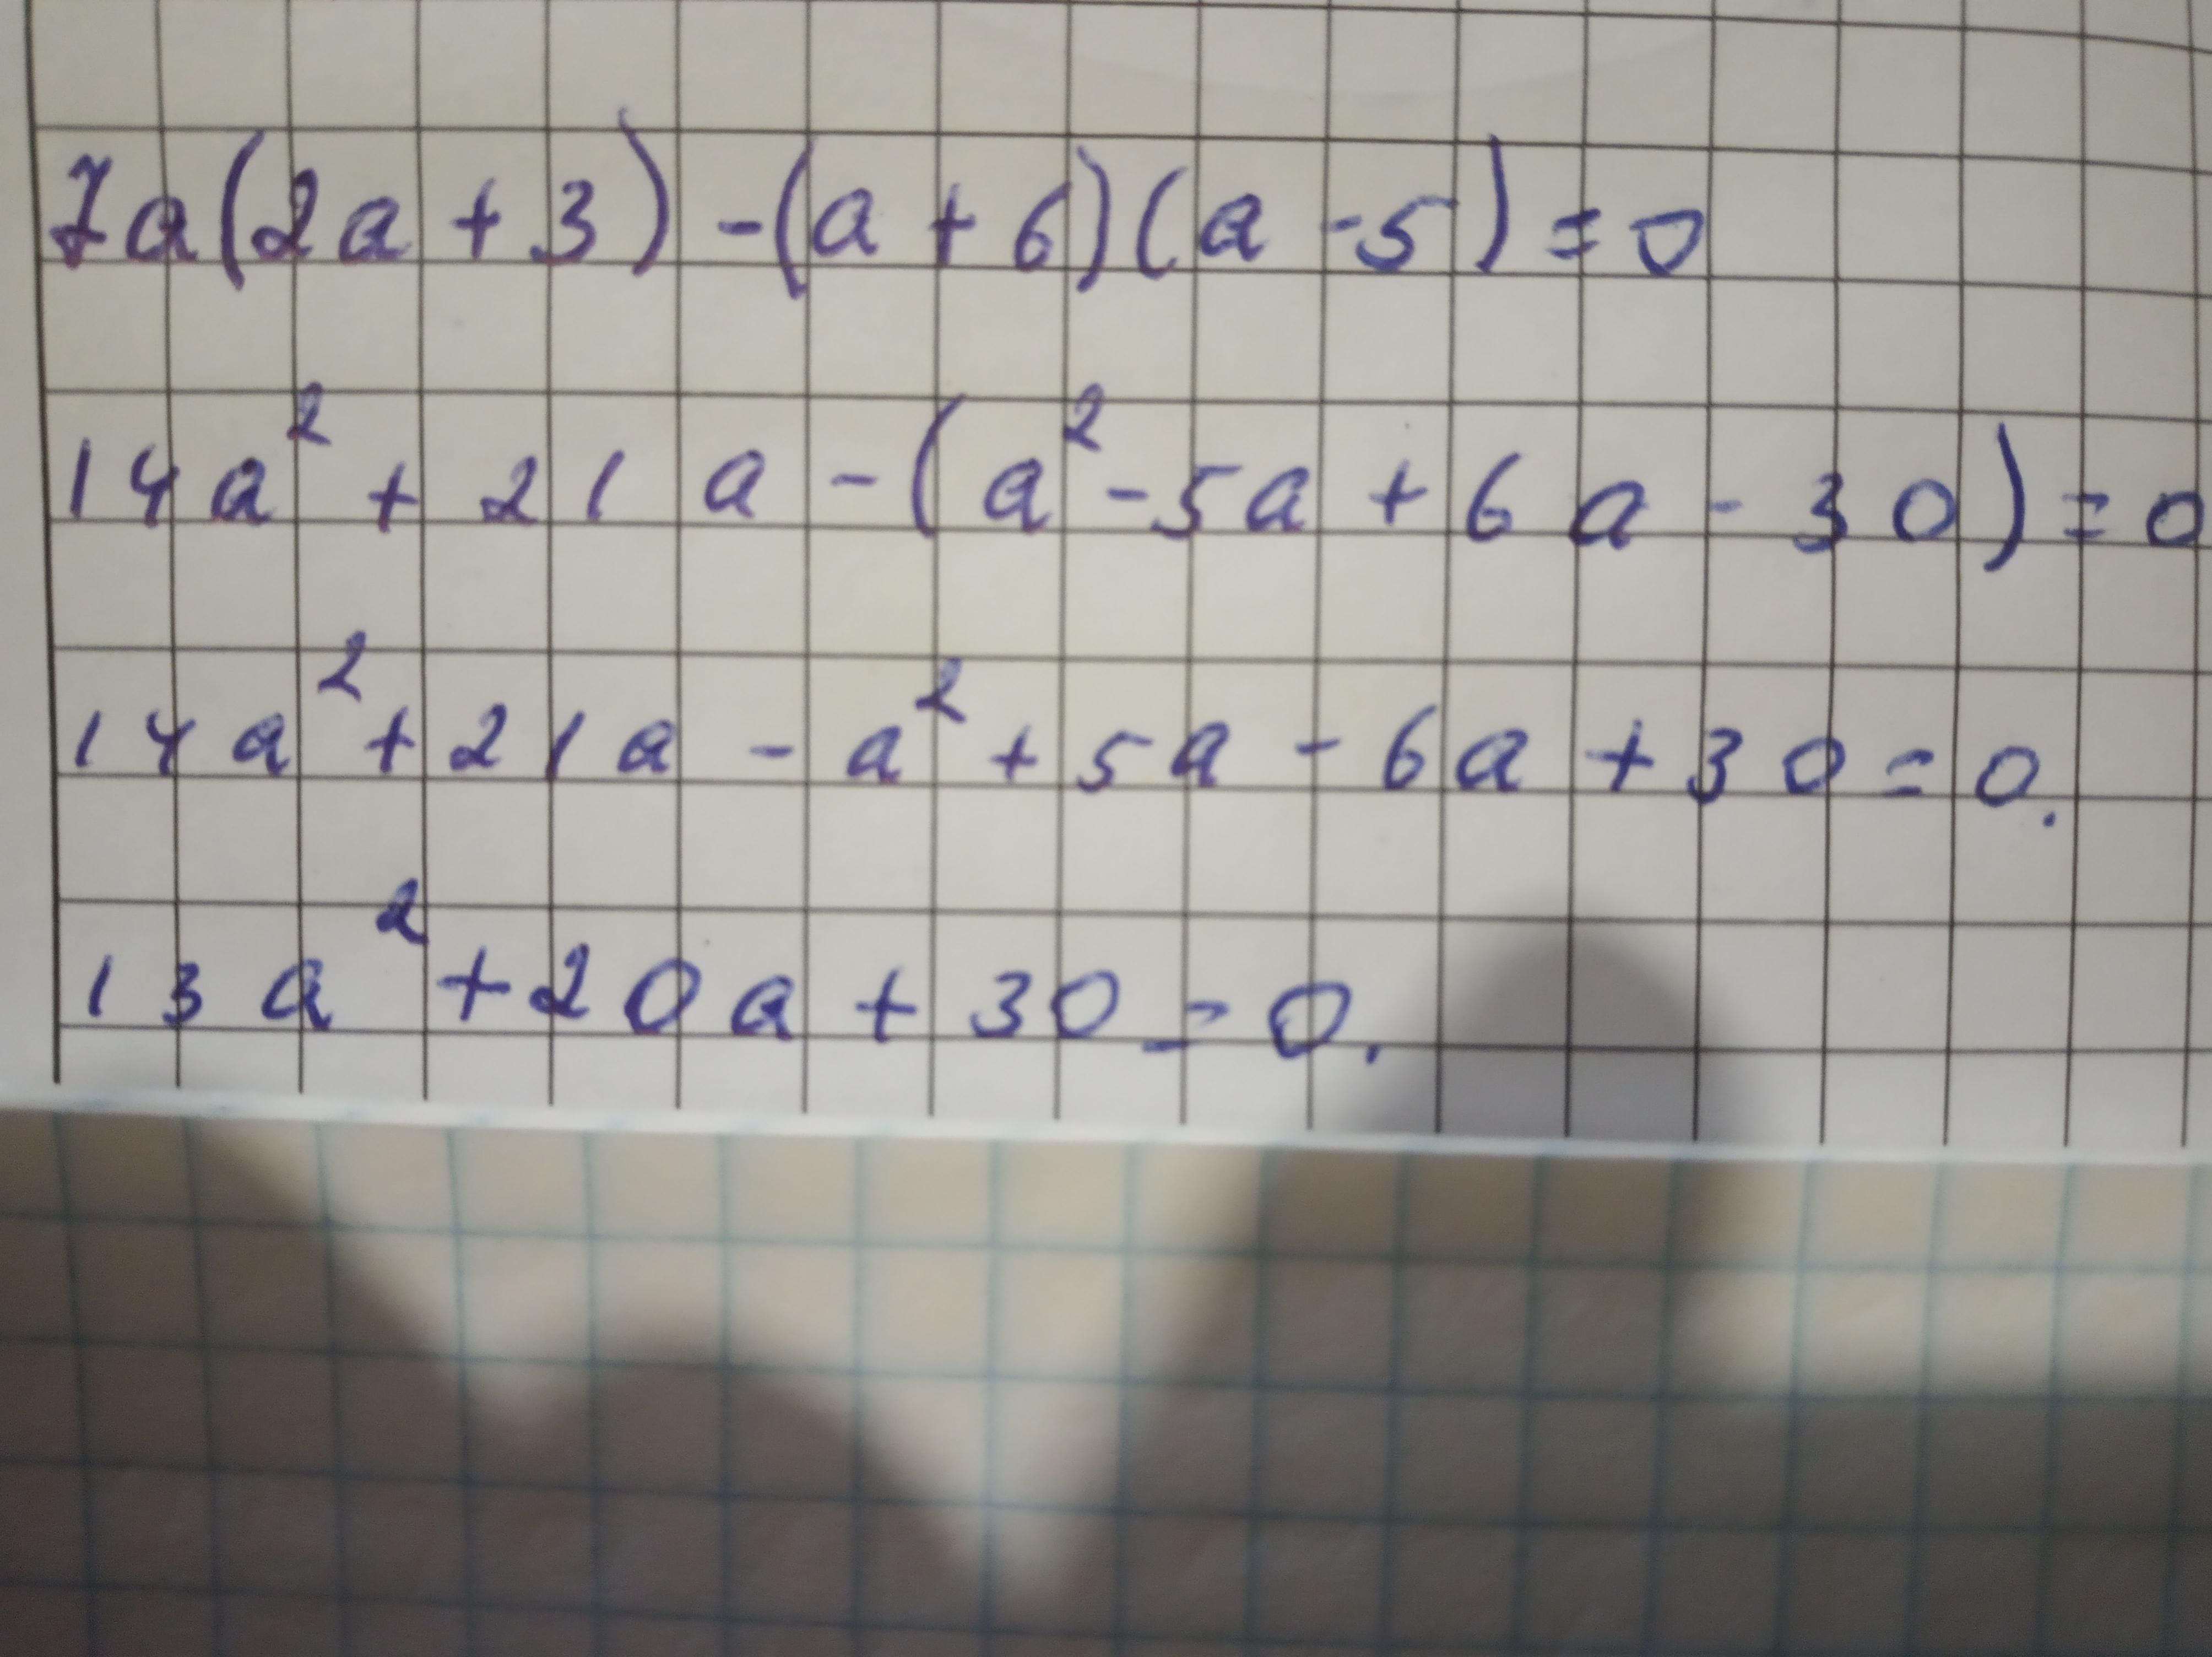 7a(2a+3)-(a+6)(a-5)=0
14a²+21a-(a²-5a+6a-30)=0
14a²+21a-a²+5a-6a+30=0.
13a²+20a+30=0.